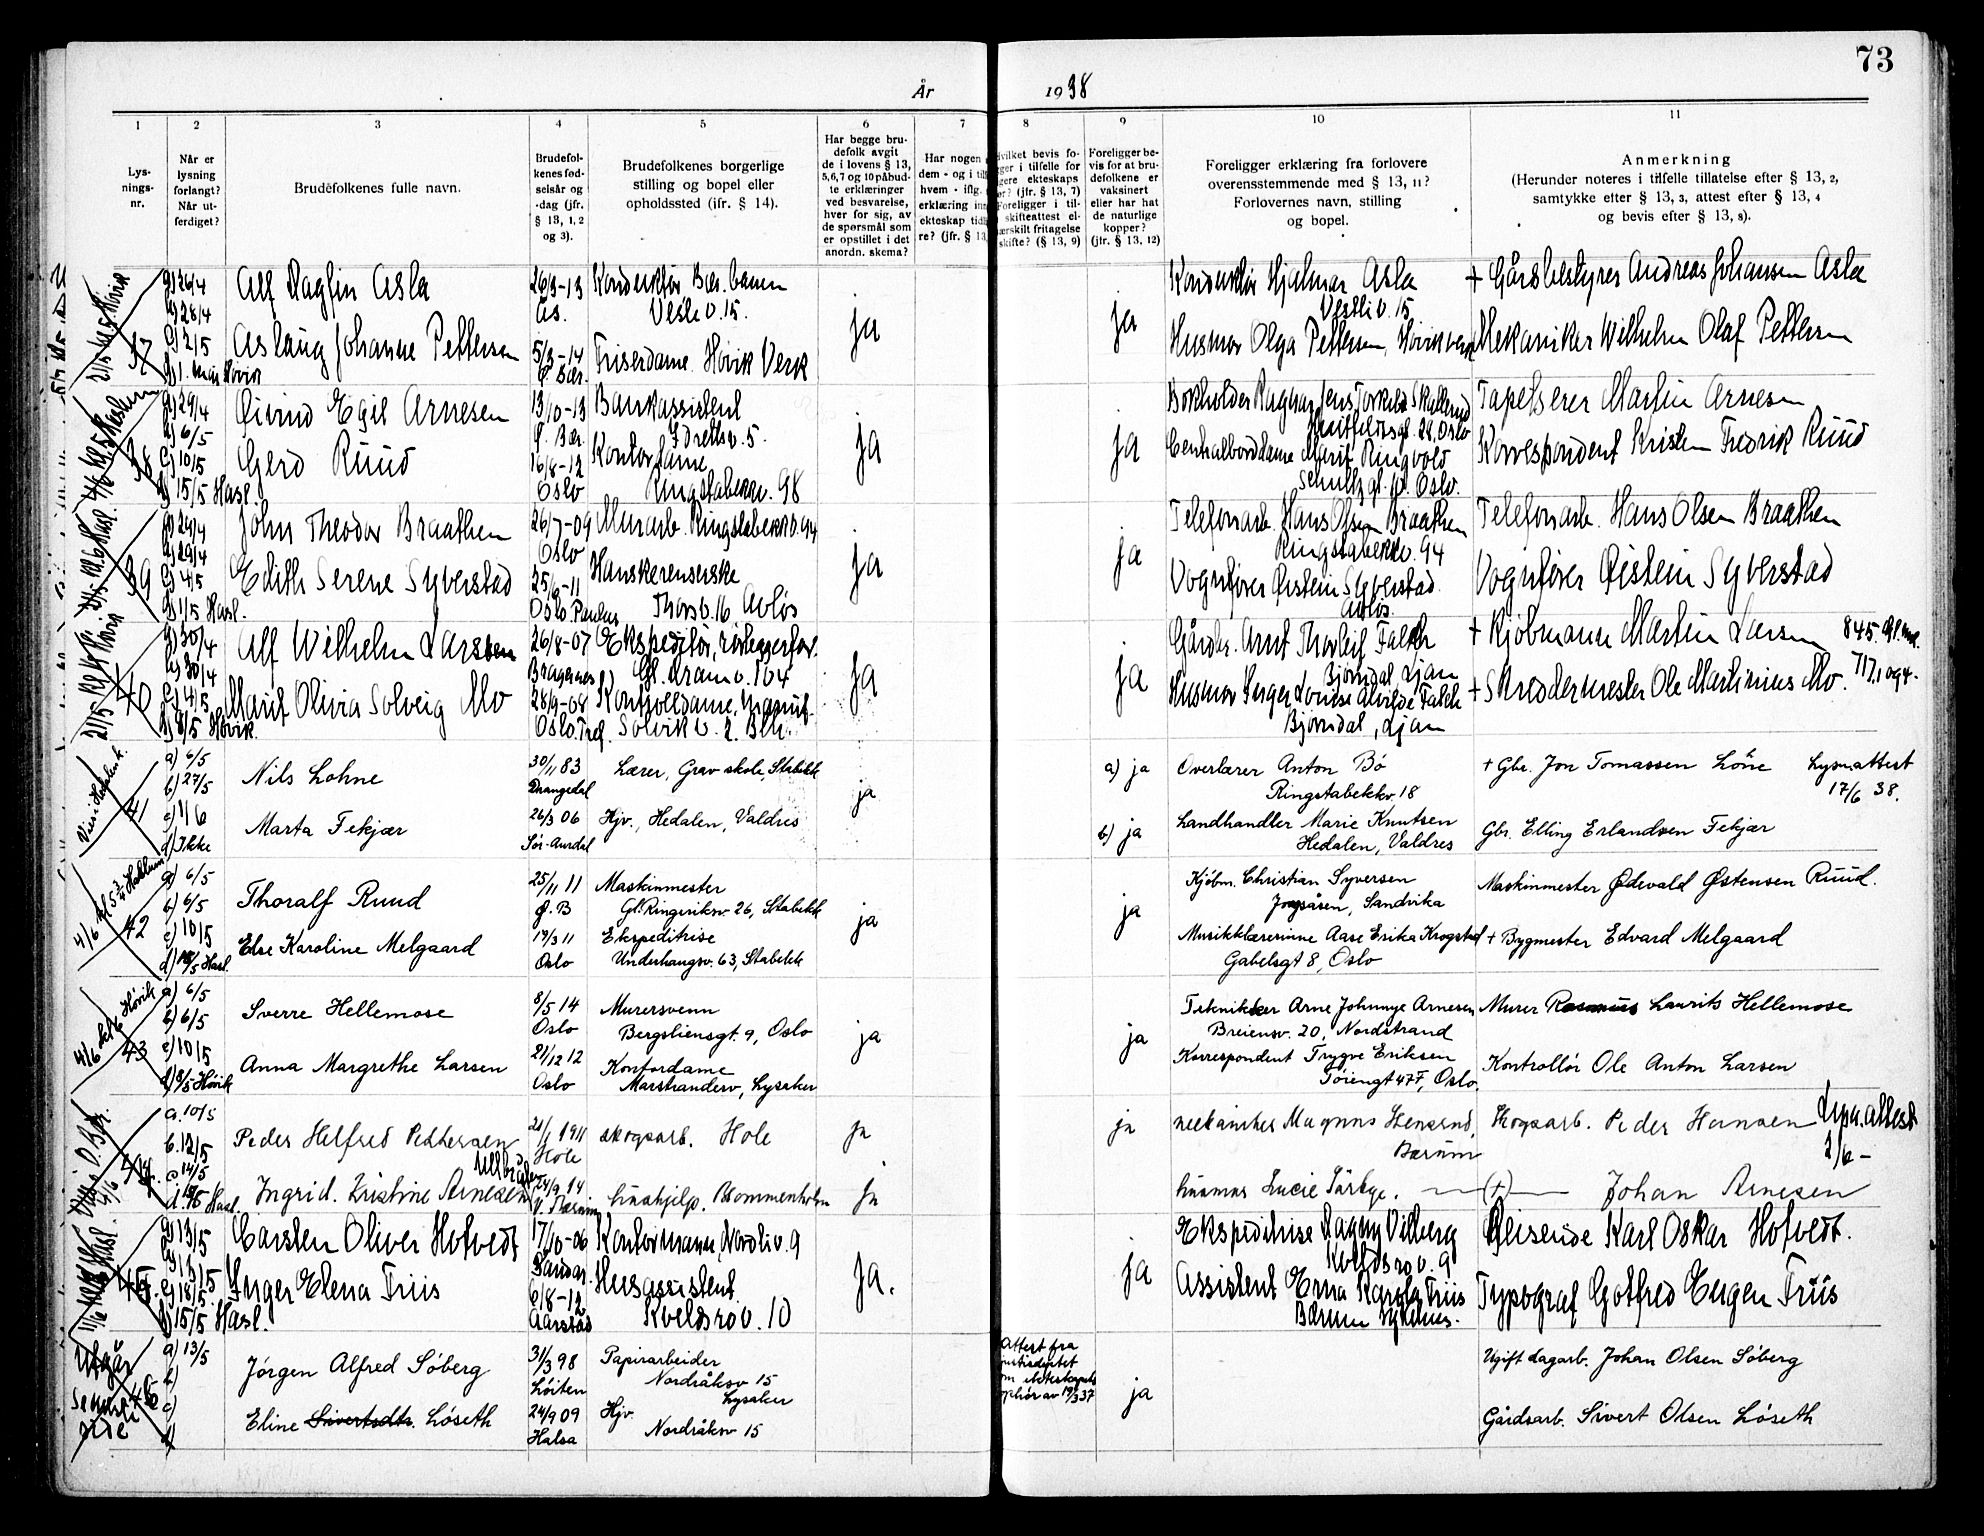 73
År 1938
1 2 3 4 5 6 7 8 9 10 11
Lys-
nings-
nr.
Når er
lysning
forlangt?
Når ut-
ferdiget?
Brudefolkenes fulle navn.
Brudefol-
kenes fød-
selsår og
-dag (jfr.
§ 13, 1, 2
og 3).
Brudefolkenes borgerlige
stilling og bopel eller
opholdssted (ifr. § 14).
Har begge bru-
defolk avgit
de i lovens § 13,
5,6,7 og 10 påbud-
te erklæringer
ved besvarelse,
hver for sig, av
de spørsmål som
er opstillet i det
anordn. skema?
Har nogen
dem - og i
hvem - iflg.
erklæring
ekteskap
re? (jfr. § 13,
bevis fo-
i tilfelle for
ekteskaps
(jfr. § 13, 7)
Foreligger i til-
skifteattest el-
fritagelse
skifte? (§ 13, 9)
Foreligger be-
vis for at bru-
defolkene er
vaksinert
eller har hat
de naturlige
kopper?
(jfr. § 13, 12)
Foreligger erklæring fra forlovere
overensstemmende med § 13, 11?
Forlovernes navn, stilling
og bopel.
Anmerkning
(Herunder noteres i tilfelle tillatelse efter § 13, 2,
samtykke efter § 13, 3, attest efter § 13, 4
og bevis efter § 13, 8).
37
a) 26/4
b) 28/4
c) 2/5
Alf Ragfin Asla
26/3-13
Ås.
Konduktør Bær. banen
Vestliv. 15.
ja
ja
Konduktør Hjalmar Asla
Vestliv. 15.
+ Gårdsbestyrer Andreas Johansen Asla
Aslaug Johanne Pettersen
5/3-14
Friserdame. Høvik Verk
Husmor Olga Pettersen, Høvik verk
Mekaniker Wilhelm Olaf Pettersen
38
a) 29/4
b) 6/5
c) 10/5
d) 15/5 Hasl.
Øivind Egil Arnesen
13/10-13
Ø. Bær.
Bankassistent
Idrettsv. 5.
ja
ja
Bokholder Ragnar Jens Torkild Skallerud
28, Oslo
Tapetserer Martin Arnesen
Gerd Ruud
16/8-12
Oslo
Kontordame
Ringstabekkv. 98
Centralborddame Marit Ringvold
Schultz gt. Oslo.
Korrespondent Kristen Fredrik Ruud
39
a) 29/4
b) 29/4
c) 4/5
d) 1/5 Hasl.
John Theodor Braathen
26/7-09
Oslo
Murarb. Ringstabekkv. 94
ja
ja
Telefonarb. Hans Olsen Braathen
Ringstabekkv. 94
Telefonarb. Hans Olsen Braathen
Edith Serene Syverstad
25/6-11
Oslo. Paulus
Hanskerenserske
Thorsv. 16 Avløs
Vognfører Øistein Syverstad.
Avløs.
Vognfører Øistein Syverstad
40
a) 30/4
b) 30/4
c) 4/5
d) 8/5 Høvik.
Alf Wilhelm Larssen
26/8-07
Bragernes
Ekspeditør, rørleggerfor.
Gl. dramv. 104
ja
ja
Gårdbr. Arnt Thorleif Falch
Bjørndal, Ljan
+ Kjøbmann Martin Larsen
Marit Olivia Solveig Mo
28/9-08
Oslo. Tref.
Kontrolldame,
Solvik v. 2.
Husmor Inger Louise Alvilde Falch
Bjørndal, Ljan
+ Skreddermester Ole Martinius Mo.
41
a) 6/5
b) 27/5
c) 1/6
d) Ikke
Nils Lohne
30/11 83
Drangedal
Lærer, Grav skole, Stabekk
ja
a) ja
Overlærer Anton Bø
Ringstabekkv. 18
+ Gbr. Jon Tomassen Löne
Lysn.attest
17/6 38.
Marta Fekjær
26/3 06
Sør-Aurdal
Hjv., Hedalen, Valdres
b) ja
Landhandler Marie Knutsen
Hedalen, Valdres
Gbr. Elling Erlandsen Fekjær
42
a) 6/5
b) 6/5
c) 10/5
Thoralf Ruud
25/11 11
Ø. B
Maskinmester
Gl. Ringeriksv. 26, Stabekk
ja
ja
Kjøbm. Christian Syversen
Jongsåsen, Sandvika
Maskinmester Ødevald Østensen Ruud.
Else Karoline Melgaard
19/3 11
Oslo
Ekspeditrise
Underhaugsv. 63, Stabekk
Musikklærerinne Aase Erika Krogstad
Gabelsgt 8, Oslo
+ Bygmester Edvard Melgaard
43
a) 6/5
b) 6/5
c) 10/5
d) 8/5 Høvik
Sverre Hellemose
8/5 14
Oslo
Murersvenn
Bergsliensgt. 9, Oslo
ja
ja
Tekniker Arne Johnnye Arnesen
Breiensv. 20, Nordstrand
Murer Rasmus Laurits Hellemose
Anna Margrethe Larsen
21/12 12
Oslo
Kontordame
Marstrandersv, Lysaker
Korrespondent Trygve Eriksen
Sørengt 47F, Oslo.
Kontrollør Ole Anton Larsen
44.
a. 10/5
b. 12/5
c 14/5
Peder Helfred Pedhersen
21/1 1911
Hole
skogsarb. Hole
ja
ja
mekaniker Magnus
Bærum
Skogsarb. Peder Hansen
Lysn. attest
2/6 -
Ingrid. Kristine Arnesen
24/9 14
V. Bærum
hushjelp. Blommenholm
ja
husmor Lucie
(+) Johan Arnesen
45.
a) 13/5
b) 13/5
c) 18/5
d) 15/5 Hasl.
Carsten Oliver Hofvedt
17/10-06
Kontormann, Nordliv. 9
ja.
ja
Ekspeditrise Dagny Vilberg
Kveldsrov. 9
Reisende Karl Oskar Hofvedt.
Inger Elena Friis
6/8-12
Aarstad
Husassistent.
Kveldsrov. 10
Assistent Erna Karola Friis
Bærum sykehus.
Typograf Gotfred Eugen Friis
Utgår
Se neste
side
46
a) 13/5
b)
c)
d)
Jørgen Alfred Söberg
31/3 98
Löiten
Papirarbeider
Nordråksv 15
Lysaker
Attest fra
om ekteskapets
ophør av 19/3 37
ja
Ugift dagarb. Johan Olsen Söberg
Eline Sivertsdtr. Löseth
24/9 09
Halsa
Hjv.
Nordråksv 15
Gårdsarb. Sivert Olsen Löseth